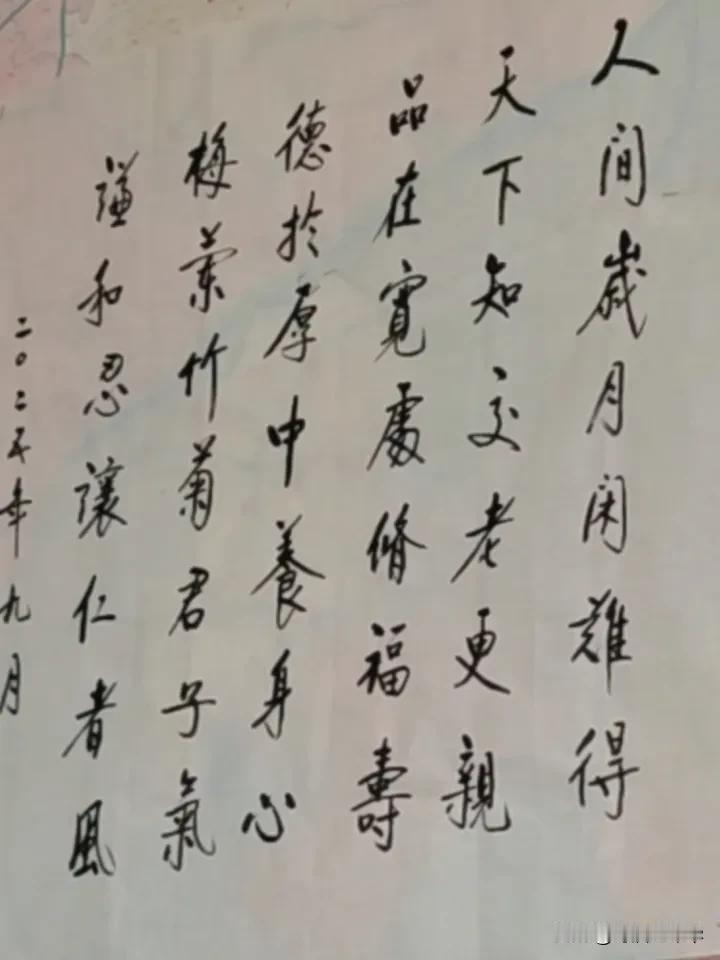 人間歲月閑難得
天下知交老更親
品在寬處脩福壽
德於厚中養身心
梅蘭竹菊君子氣
謙和忍讓仁者風
二〇二五年九月